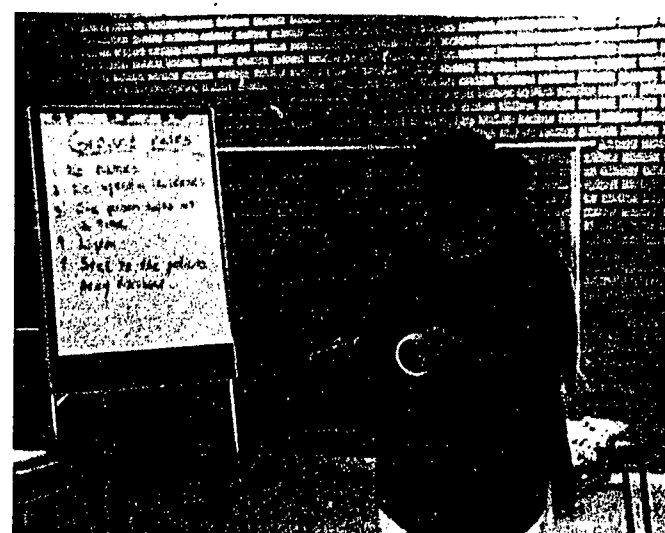 Ground Rules
1. No names
2. No specific incidents
3. One person talks at
a time
4. Listen
5. Stick to the
being